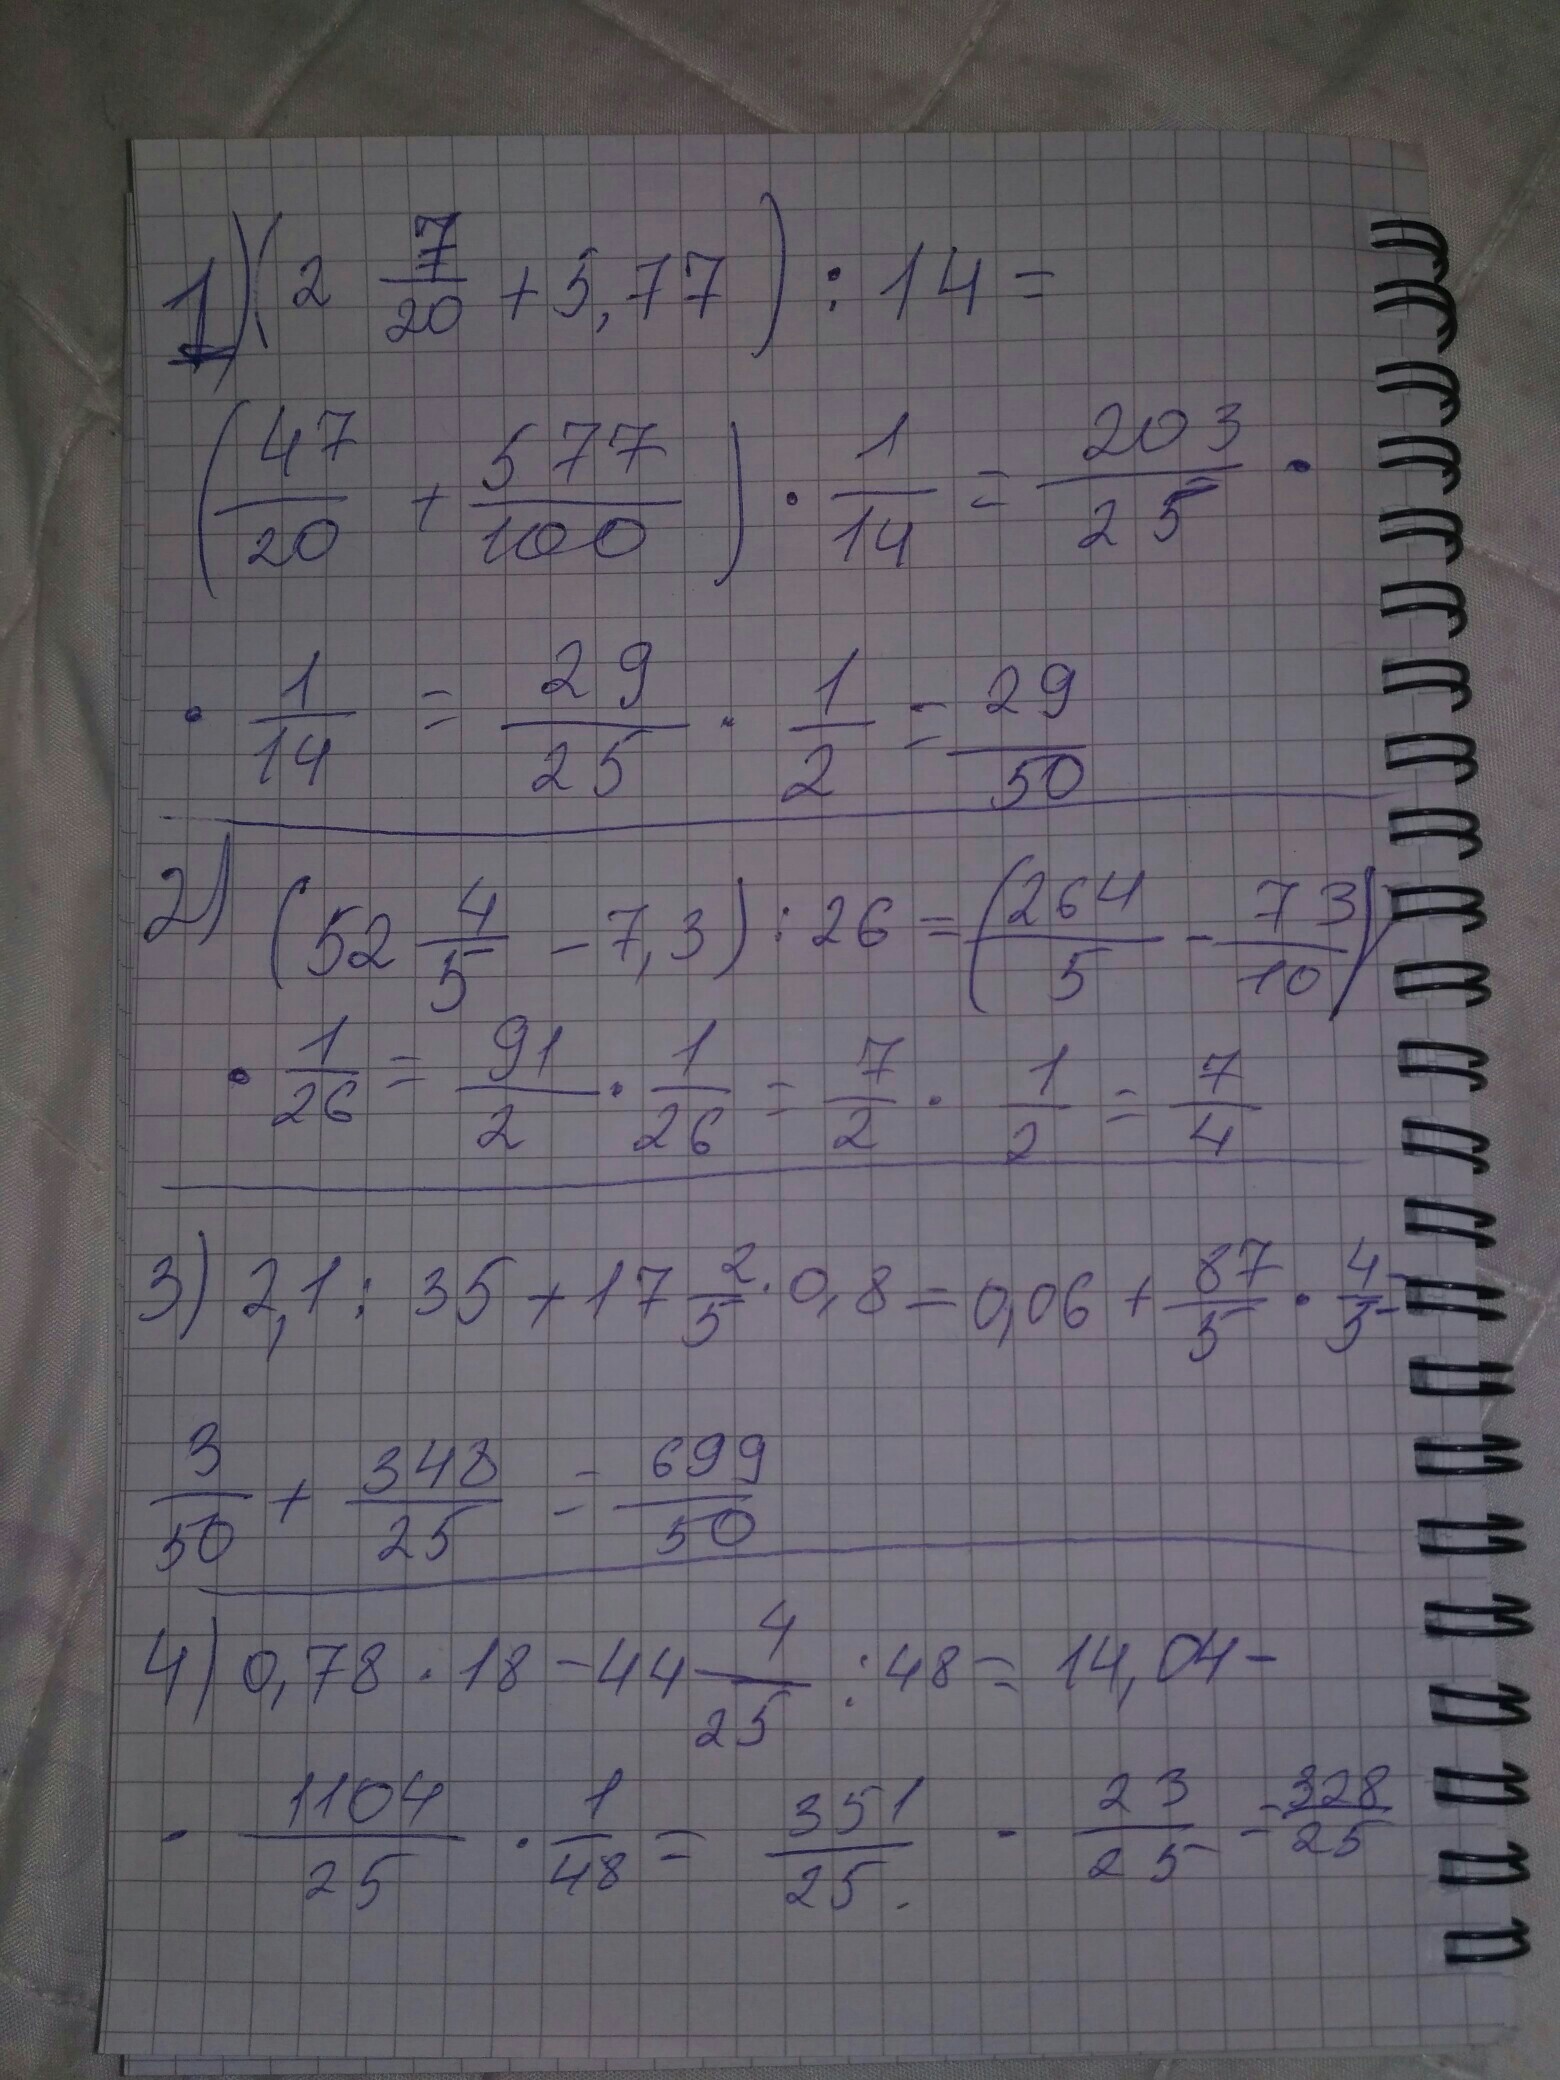 1) (2 7/20 + 5,77) : 14 =
(47/20 + 577/100) · 1/14 = 203/25 ·
· 1/14 = 29/25 · 1/2 = 29/50
2) (52 4/5 - 7,3) : 26 = (264/5 - 73/10)
· 1/26 = 91/2 · 1/26 = 7/2 · 1/2 = 7/4
3) 2,1 : 35 + 17 2/5 · 0,8 = 0,06 + 87/5 · 4/5 =
3/50 + 348/25 = 699/50
4) 0,78 · 18 - 44 4/25 : 48 = 14,04 -
- 1104/25 · 1/48 = 351/25 - 23/25 = 328/25